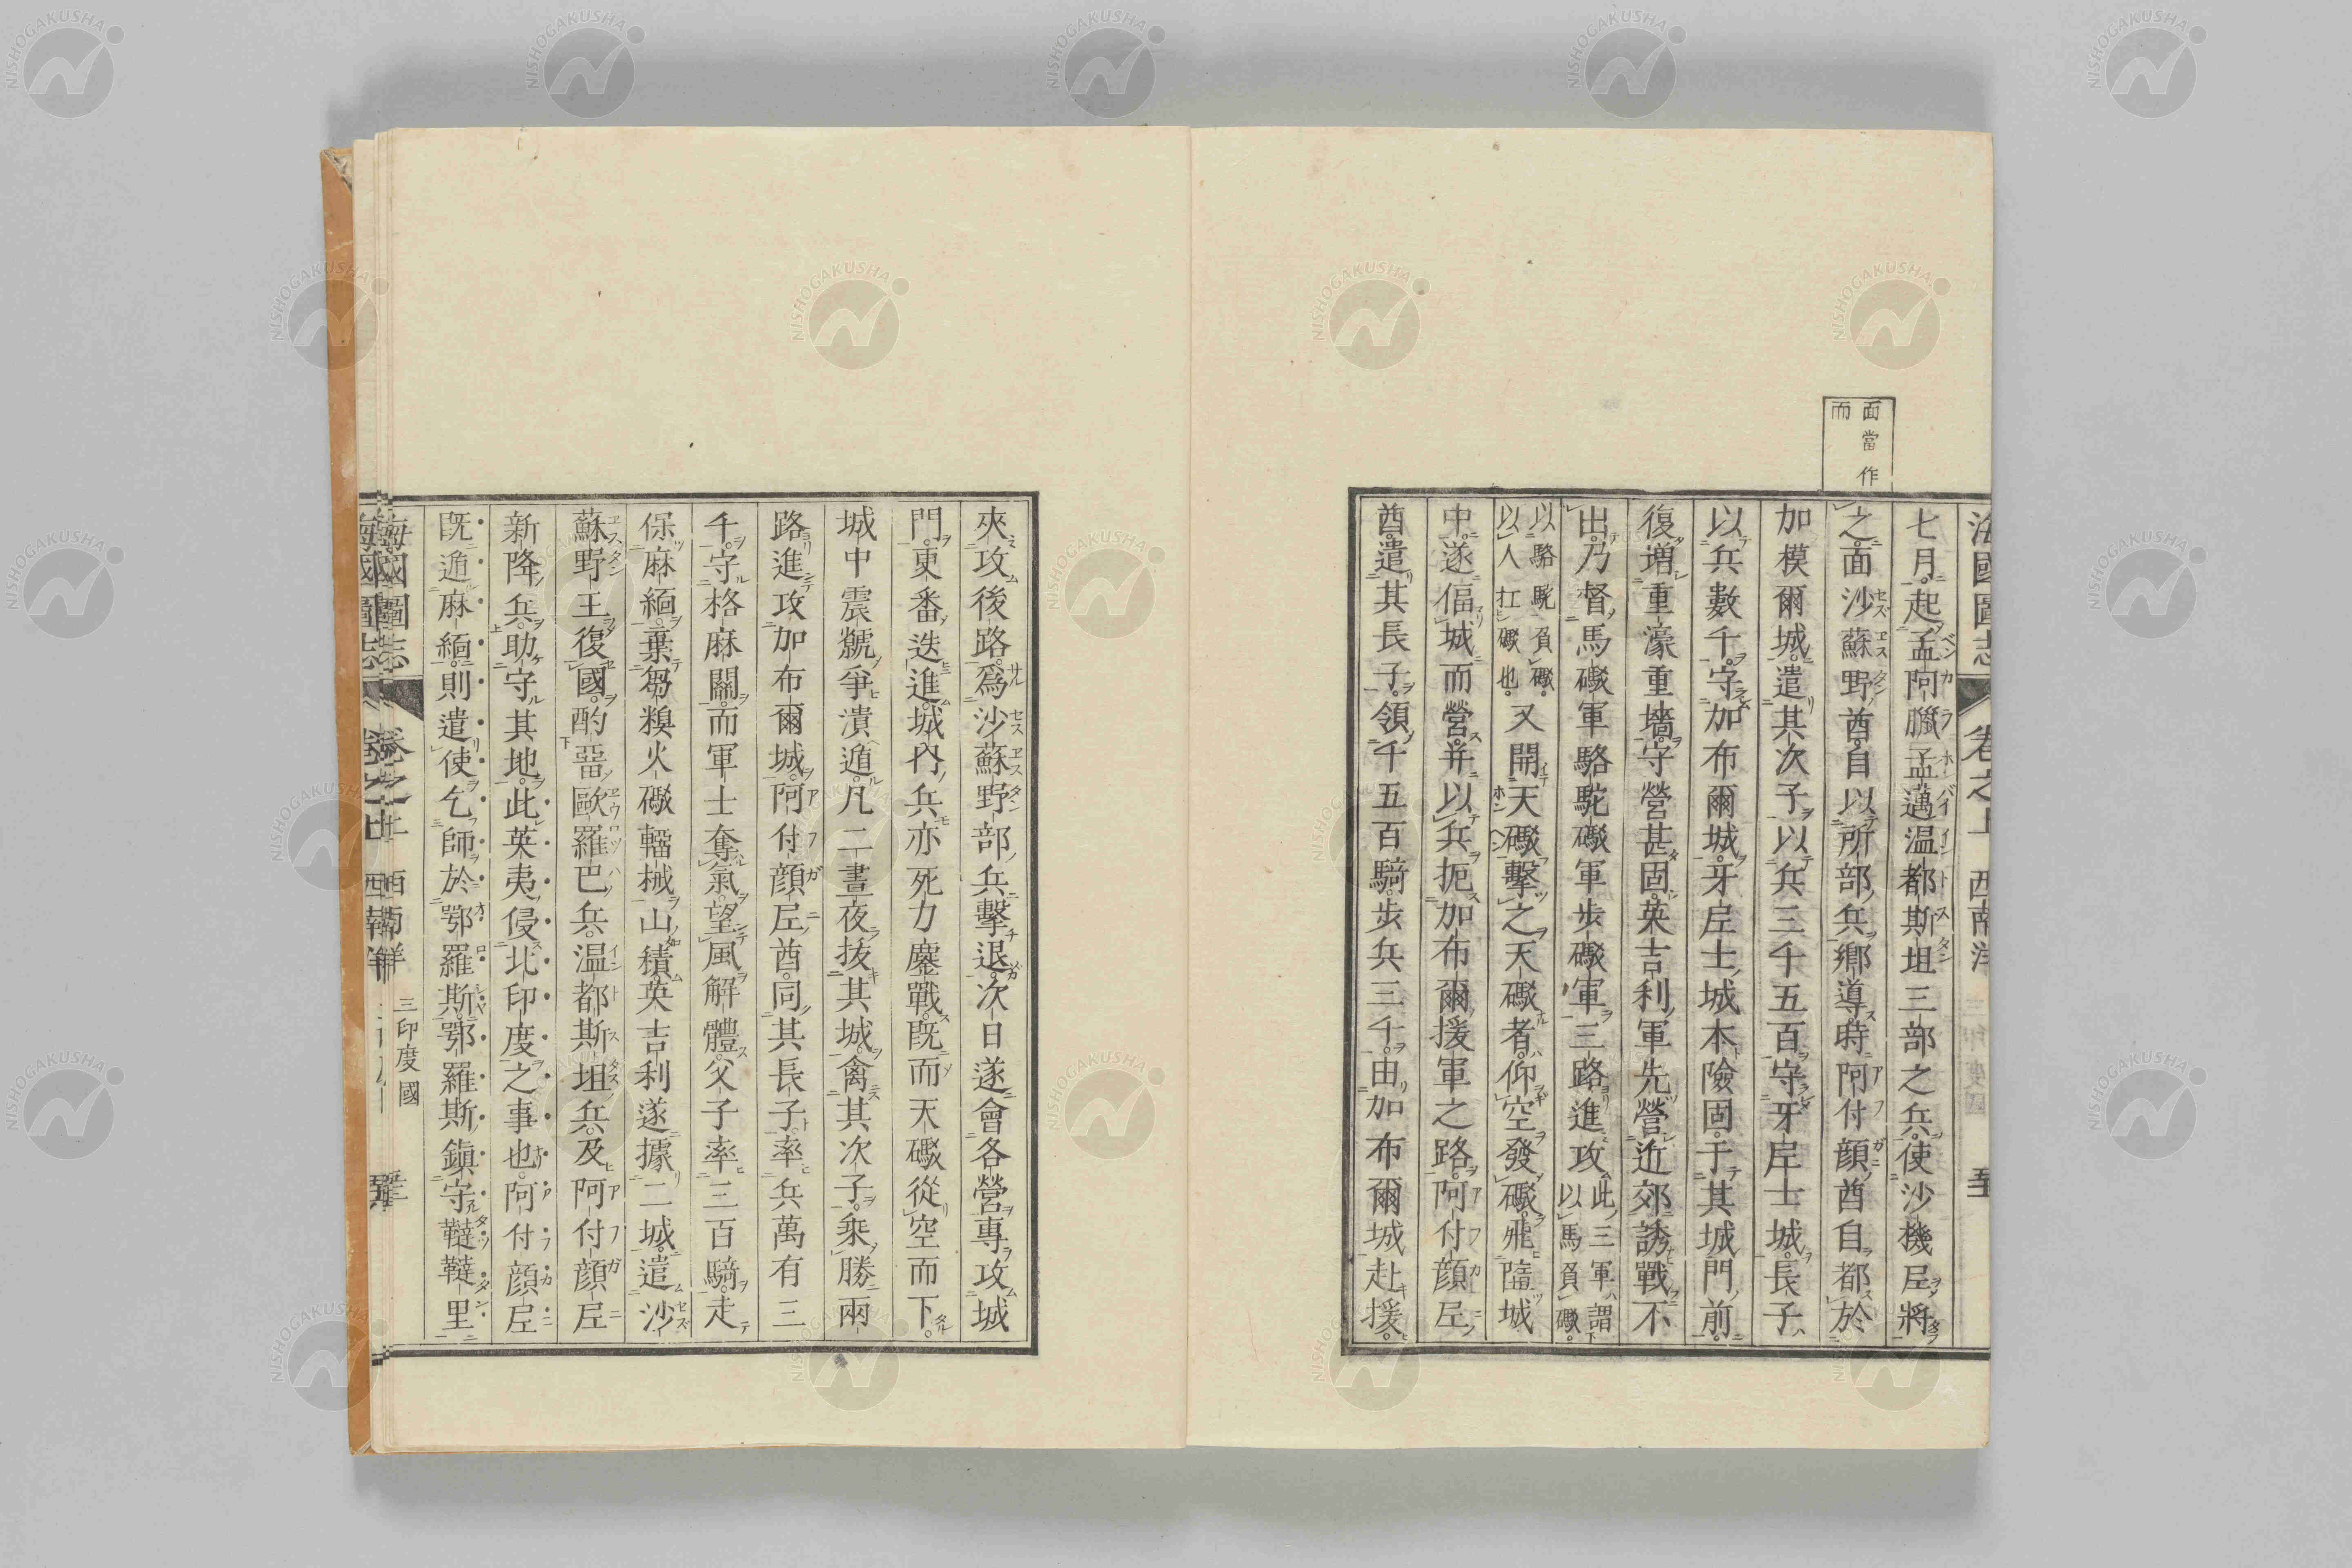 面當作
而
海國圖志 卷之上 西南洋
七月。起孟阿臘孟邁温都斯坦三部之兵。使沙機尼將
之面沙蘇野酋。自以所部兵鄉導。時阿付顔酋自都於
加模爾城。遣其次子以兵三千五百守牙尼士城。長子
以兵數千。守加布爾城。牙尼士城本險固。于其城門前。
復增重濠重墻。守營甚固。英吉利軍先營近郊誘戰不
出。乃督馬礮軍駱駝礮軍步礮軍三路進攻此三軍謂以馬負礮。
以駱駝負礮。以人扛礮也。又開天礮擊之天礮者。仰空發礮。飛隨城
中。遂偪城而營。并以兵扼加布爾援軍之路。阿付顔尼
酋。遣其長子。領千五百騎。步兵三千。由加布爾城赴援。
夾攻後路。爲沙蘇野部兵擊退。次日遂會各營專攻城
門。更番迭進。城內兵亦死力鏖戰。既而天礮從空而下。
城中震虩爭潰遁。凡二晝夜拔其城。禽其次子。乘勝兩
路進攻加布爾城。阿付顔尼酋。同其長子。率兵萬有三
千。守格麻關。而軍士奪氣。望風解體。父子率三百騎。走
保麻緬。棄芻糗火礮輜械山積。英吉利遂據二城。遣沙
蘇野王復國。酌畱歐羅巴兵。温都斯坦兵。及阿付顔尼
新降兵。助守其地。此英夷侵北印度之事也。阿付顔尼
既遁麻緬。則遣使乞師於鄂羅斯。鄂羅斯鎮守韃韃里
海國圖志 三印度國